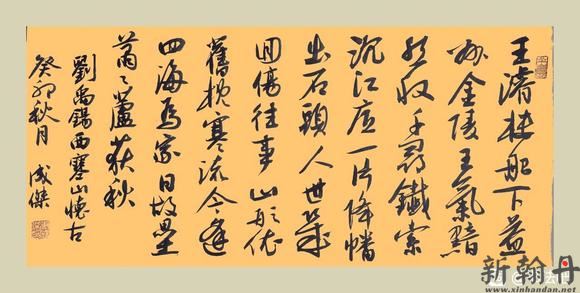 王濬楼船下益
州金陵王氣黯
然收千尋鐵索
沉江底一片降幡
出石頭人世幾
回傷往事山形依
舊枕寒流今逢
四海為家日故壘
蕭々蘆荻秋
劉禹錫西塞山懷古
癸卯秋月 成傑
新翰丹
www.xinhandan.net